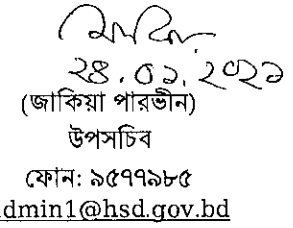 ২৪.০১.২০২১
(জাকিয়া পারভীন)
উপসচিব
ফোন: ৯৫৭৭৯৮৫
dmin1@hsd.gov.bd